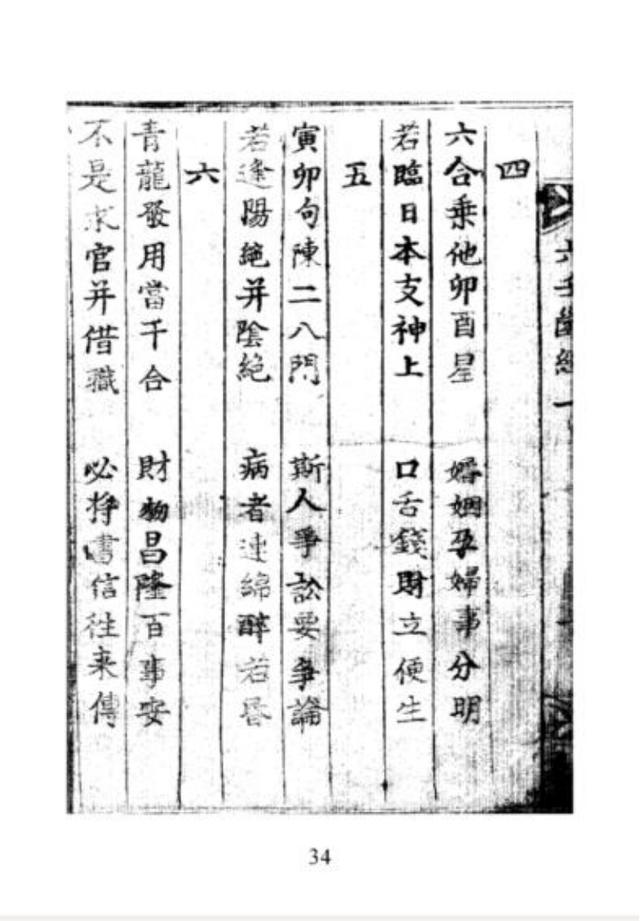 六壬斷經一
四
六合乗他卯酉星 婚姻孕婦事分明
若臨日本支神上 口舌錢財立便生
五
寅卯句陳二八門 斯人爭訟要争論
若逢陽絕并陰絕 病者連綿醉若昏
六
青龍發用當干合 財物昌隆百事安
不是求官并借職 必持書信往来傳
34